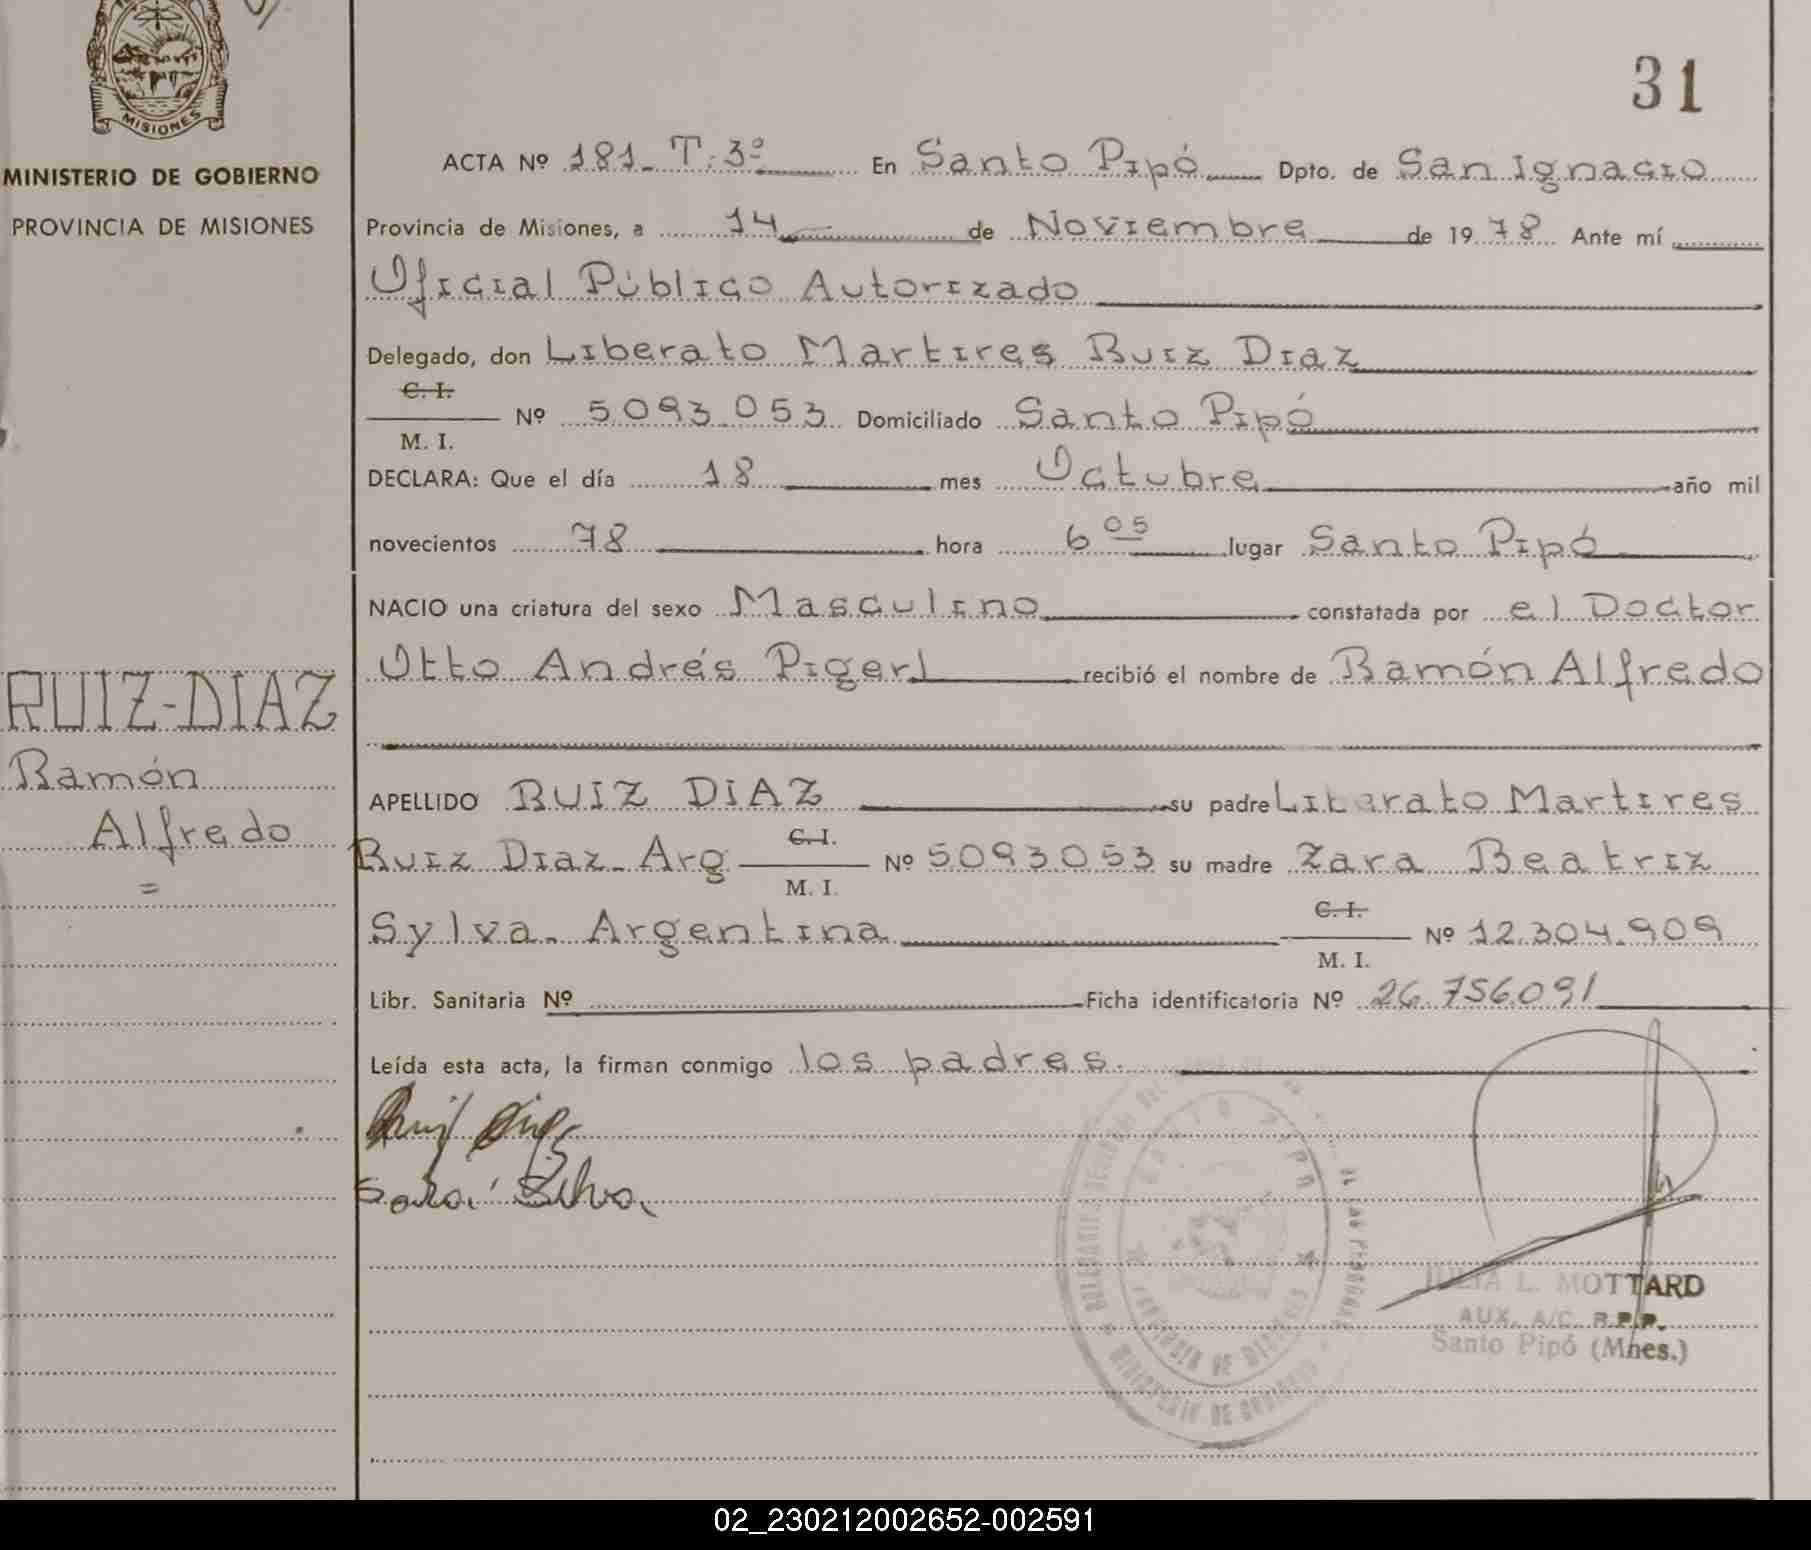 31
MISIONES
MINISTERIO DE GOBIERNO
PROVINCIA DE MISIONES
ACTA Nº 181_ T. 3º En Santo Pipó Dpto. de San Ignacio
Provincia de Misiones, a 14 de Noviembre de 19 78 Ante mí
Oficial Público Autorizado
Delegado, don Liberato Martires Ruiz Diaz
C. I.
M. I.
Nº 5.093.053 Domiciliado Santo Pipó
DECLARA: Que el día 18 mes Octubre año mil
novecientos 78 hora 6 05 lugar Santo Pipó
NACIO una criatura del sexo Masculino constatada por el Doctor
Otto Andrés Pigerl recibió el nombre de Ramón Alfredo
RUIZ-DIAZ
Ramón
Alfredo
=
APELLIDO RUIZ DIAZ su padre Liberato Martires
Ruiz Diaz_ Arg C. I. M. I. Nº 5.093.053 su madre Zara Beatriz
Sylva_ Argentina C. I. M. I. Nº 12.304.909
Libr. Sanitaria Nº Ficha identificatoria Nº 26.756.091
Leída esta acta, la firman conmigo los padres.
Ruiz Diaz
Silva
SANTO PIPO
PROVINCIA DE MISIONES
MINISTERIO DE GOBIERNO
JULIA L. MOTTARD
AUX. A/C. R.P.P.
Santo Pipó (Mnes.)
02_230212002652-002591